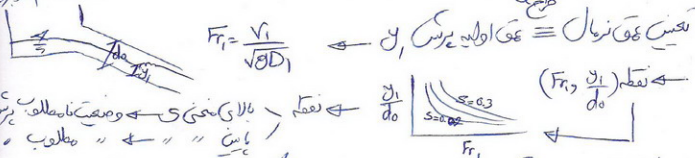 تعیین عمق نرمال ≡ عمق اولیه پرش y₁ ← Fr₁ = V₁/√gD₁
d₀
y₁
← نقطه (Fr₁, y₁/d₀)
y₁/d₀
S=0.3
Fr₁
← نقطه بالای منحنی ی ← وضعیت نامطلوب
پایین " " ← " مطلوب